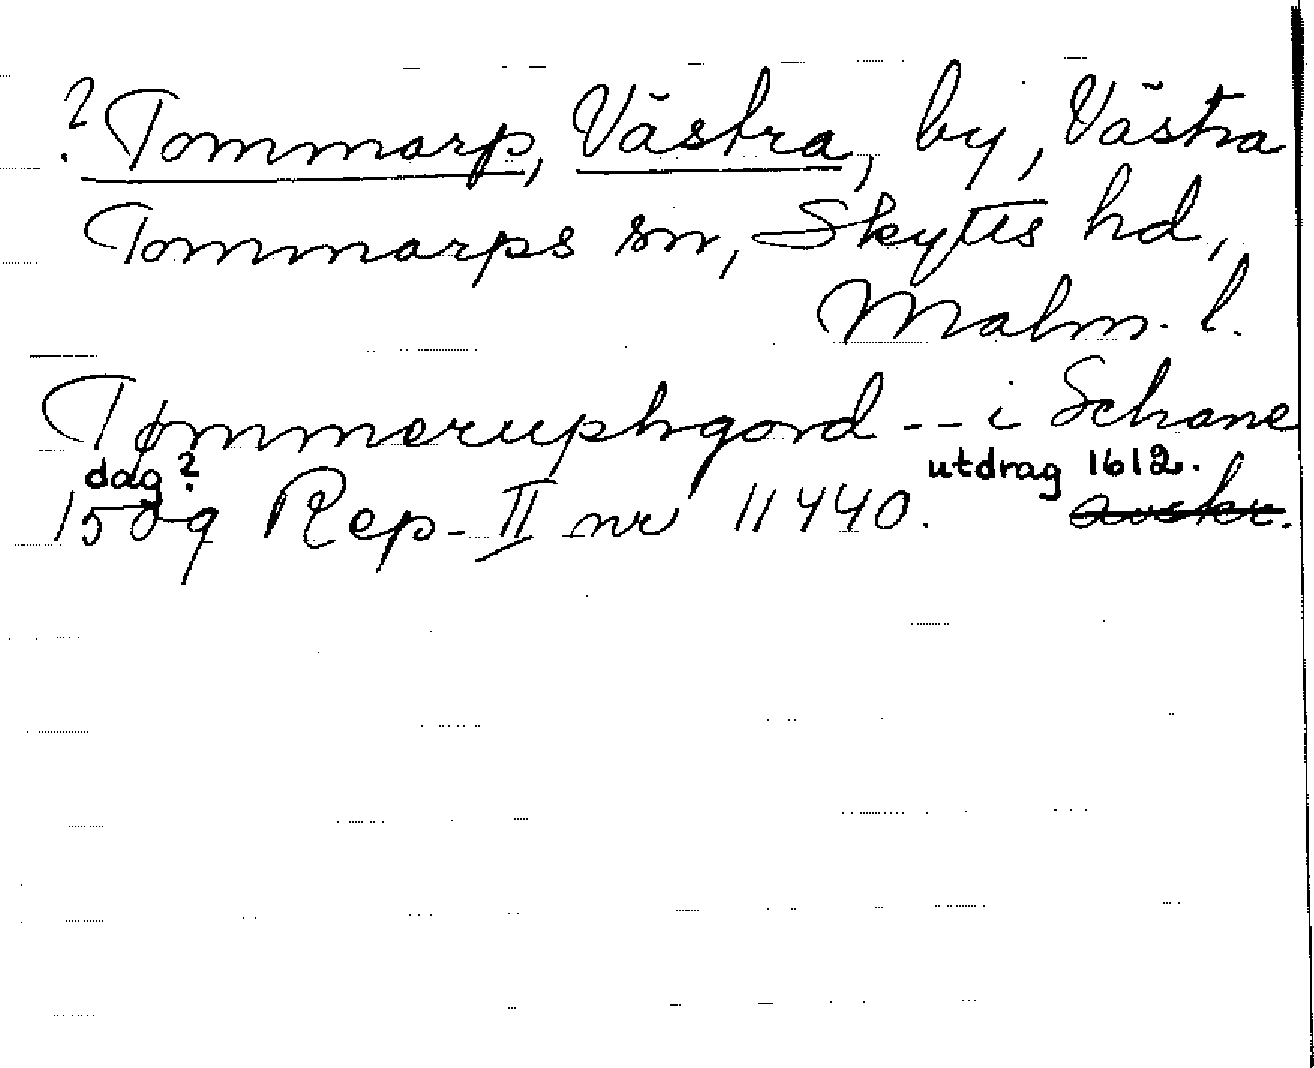 ? Tommarp, Västra, by, Västra
Tommarps sn, Skytts hd,
Malm. l.
Tømmeruphgord -- i Schane
dag? utdrag 1612.
1509 Rep. II nr 11440. avskr.